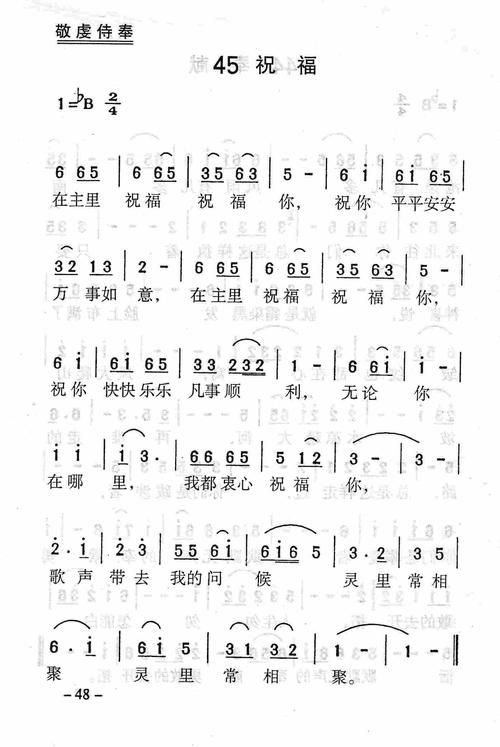 敬虔侍奉
45 祝 福
1=♭B 2/4
6 65 | 6 65 | 35 63 | 5 - | 6 6 | 6i 65 |
在主里 祝福 祝福 你, 祝你 平平安安
32 13 | 2 - | 6 65 | 6 65 | 35 63 | 5 - |
万 事如 意, 在主里 祝福 祝福 你,
6 6 | 6i 60 | 33 232 | i - | i i 2 |
祝你 快快乐乐 凡事顺 利, 无论 你
6 i | i 3· | 66 65 | 5 i2 | 3 - | 3 - |
在哪 里, 我都衷心 祝福 你,
2· i | 2 3 | 55 6i | 6i65 | 3· 2 | i 2 |
歌声 带去 我的问 候 灵里 常相
6· i | 3· 2 | i 2 | 3 i | i - | i - |
聚 灵里 常相 聚。
- 48 -